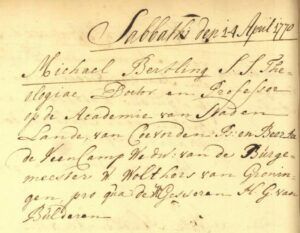 Sabbathi den 14 April 1770
Michael Bertling S. S. Theo-
logiae Doctor en Professor
op de Academie van Staden
Lande, van Coevorden P: en
de Veen Camp Wedw: van de Burge-
meester W Wolthers van Gronin-
gen, pro qua de H Gesseren H. G. van
Bulderen